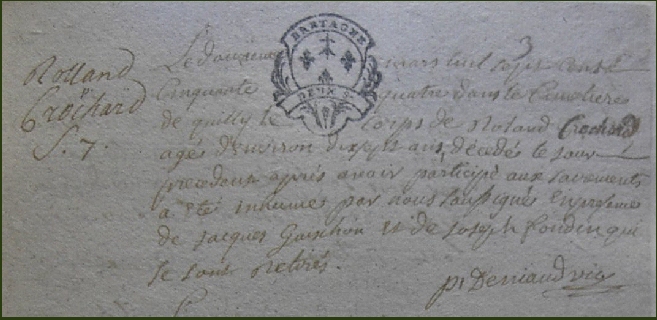 BRETAGNE
DEUX S
Rolland
Crochard
S. 7.
Le douzieme mars mil sept cent
Cinquante quatre dans le Cimetiere
de quilly le corps de Roland Crochard
agés d'environ dixsept ans, décedés le jour
precedent après avoir participé aux sacements
a été inhumés par nous soussignés en presence
de jacques Guischou et de joseph Condin qui
se sont Retirés.
pr Derriaud vic